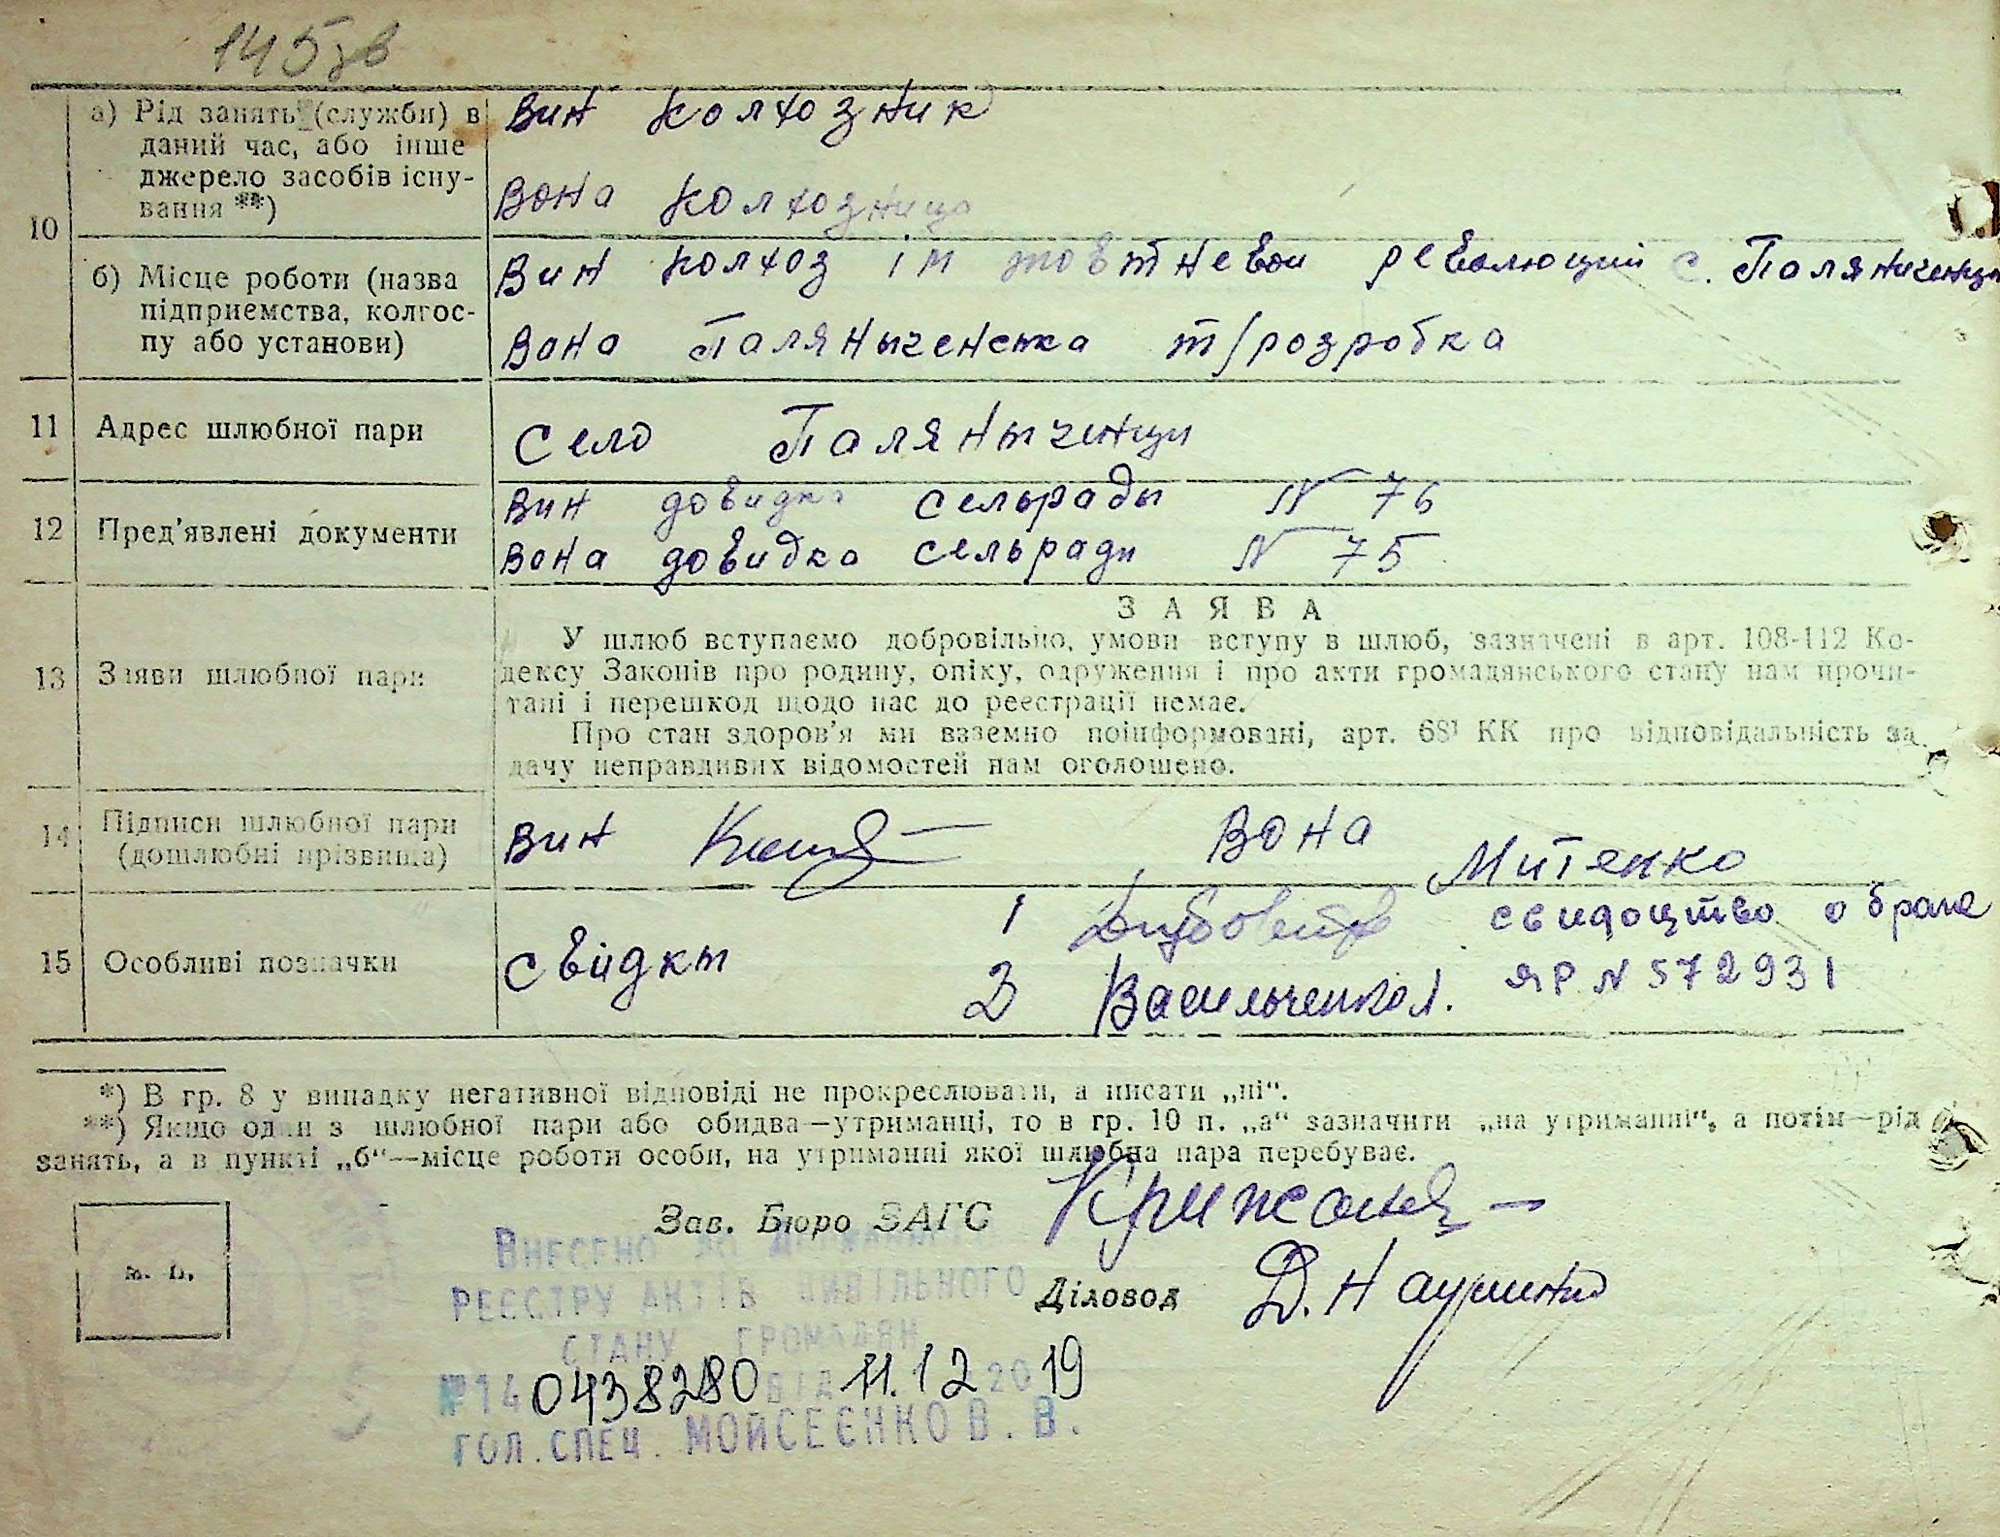 145зв
10
а) Рід занять (служби) в
даний час, або інше
джерело засобів існу-
вання **)
Вин колхозник
Вона колхозница
б) Місце роботи (назва
підприємства, колгос-
пу або установи)
Вин колхоз ім жовтневои революции с. Паляниченци
Вона Паляныченська т/розробка
11 Адрес шлюбної пари
Село Паляныченци
12 Пред'явлені документи
Вин довидка сельрады N 76
Вона довидка сельради N 75
13 Заяви шлюбної пари
ЗАЯВА
У шлюб вступаємо добровільно, умови вступу в шлюб, зазначені в арт. 108-112 Ко-
дексу Законів про родину, опіку, одруження і про акти громадянського стану нам прочи-
тані і перешкод щодо нас до реєстрації немає.
Про стан здоров'я ми взаємно поінформовані, арт. 68¹ КК про відповідальність за
дачу неправдивих відомостей нам оголошено.
14 Підписи шлюбної пари
(дошлюбні прізвища)
Вин Вона Митенко
15 Особливі позначки
Свидкы
1
2 Васильченко
свидоцтво о браке
ЯР N 572931
*) В гр. 8 у випадку негативної відповіді не прокреслювати, а писати „ні“.
**) Якщо один з шлюбної пари або обидва—утриманці, то в гр. 10 п. „а“ зазначити „на утриманні“, а потім—рід
занять, а в пункті „б“—місце роботи особи, на утриманні якої шлюбна пара перебуває.
м. п.
Зав. Бюро ЗАГС
Діловод Д.
Внесено до Державного
реєстру актів цивільного
стану громадян
№ 14 0438280 від 11.12 2019
гол. спец. Мойсеєнко В. В.